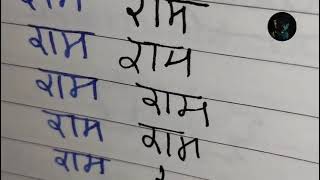 राम राम
राम राम
राम राम
राम राम
राम